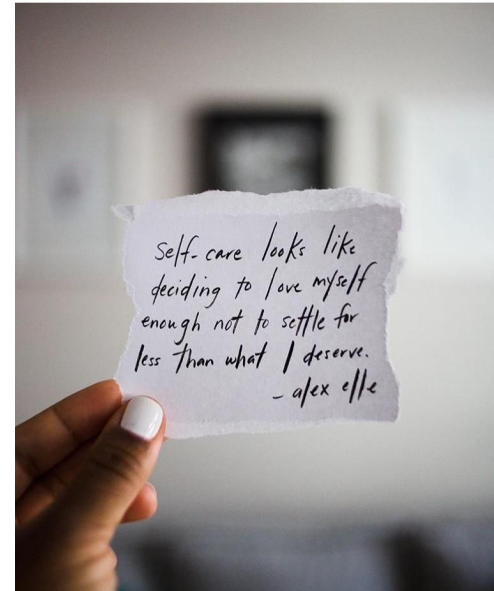 self-care looks like
deciding to love myself
enough not to settle for
less than what I deserve.
- alex elle